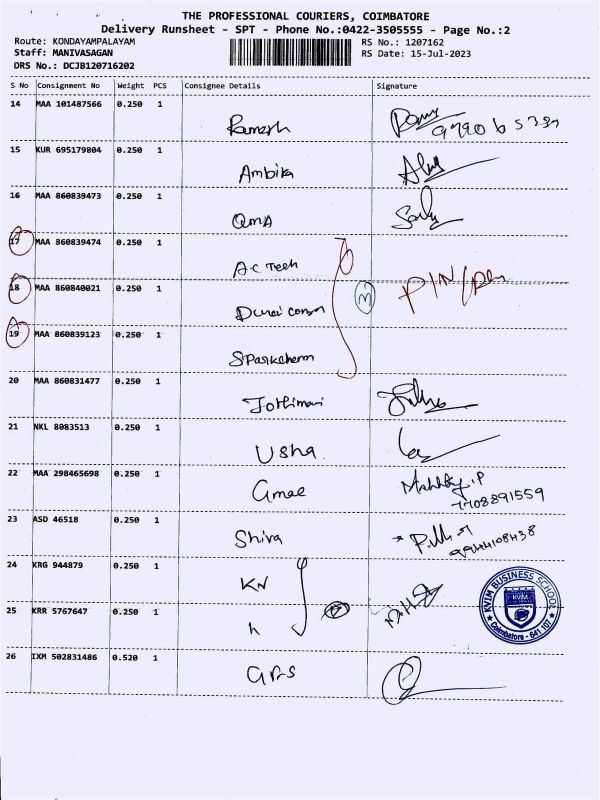 THE PROFESSIONAL COURIERS, COIMBATORE
Delivery Runsheet - SPT - Phone No.:0422-3505555 - Page No.:2
Route: KONDAYAMPALAYAM RS No.: 1207162
Staff: MANIVASAGAN RS Date: 15-Jul-2023
DRS No.: DCJB120716202
S No Consignment No Weight PCS Consignee Details Signature
14 MAA 101487566 0.250 1
Ramesh
15 KUR 695179804 0.250 1
Ambika
16 MAA 860839473 0.250 1
17 MAA 860839474 0.250 1
AC Tech
18 MAA 860840021 0.250 1
Durai
19 MAA 860839123 0.250 1
Sparkcherm
20 MAA 860831477 0.250 1
Jothimani
21 NKL 8083513 0.250 1
Usha
22 MAA 298465698 0.250 1
7708891559
23 ASD 46518 0.250 1
Shiva
9944108438
24 KRG 944879 0.250 1
KV
25 KRR 5767647 0.250 1
h
KVIM BUSINESS SCHOOL
KVIM
Coimbatore - 641 107
26 IXM 502831486 0.520 1